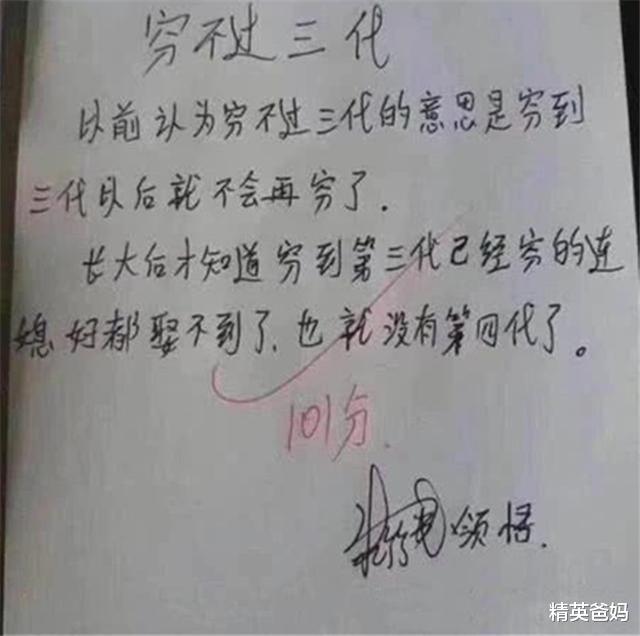 穷不过三代
以前认为穷不过三代的意思是穷到
三代以后就不会再穷了.
长大后才知道穷到第三代已经穷的连
媳好都娶不到了.也就没有第四代了。
101分.
领悟.
精英爸妈